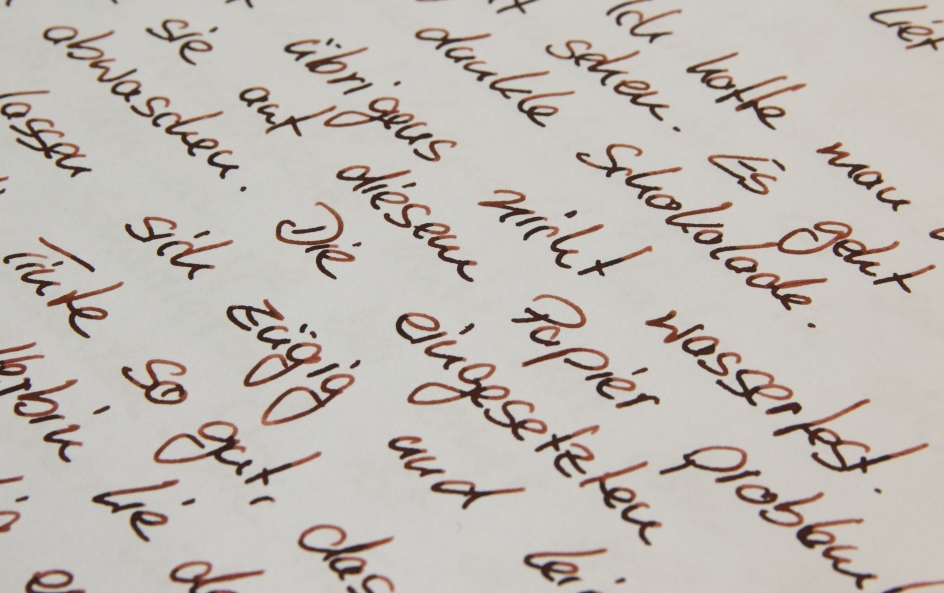 Ich hoffe man
sehen. Es geht
dunkle Schokolade.
übrigens nicht wasserfest.
sie auf diesem Papier
abwaschen. Die eingesetzten
lassen sich zügig und
Tinte so gut, das